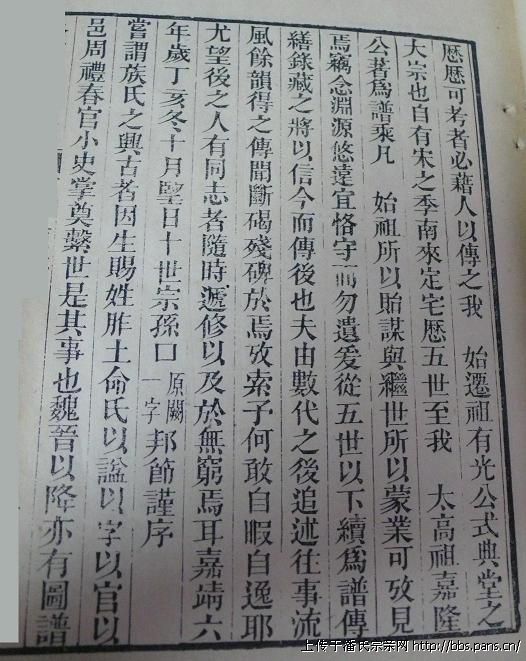 厯厯可考者必藉人以傳之我　始遷祖有光公式典堂之
大宗也自有宋之季南來定宅厯五世至我　太高祖嘉隆
公著爲譜乘凡　始祖所以貽謀與繼世所以蒙業可攷見
焉竊念淵源悠遠宜恪守而勿遺爰從五世以下續爲譜傳
繕錄藏之將以信今而傳後也夫由數代之後追述往事流
風餘韻得之傳聞斷碣殘碑於焉攷索予何敢自暇自逸耶
尤望後之人有同志者隨時遞修以及於無窮焉耳嘉靖六
年歲丁亥冬十月朢日十世宗孫口原闕一字邦節謹序
嘗謂族氏之興古者因生賜姓胙土命氏以謚以字以官以
邑周禮春官小史掌奠繫世是其事也魏晉以降亦有圖譜
上传于潘氏宗亲网 http://bbs.pans.cn/